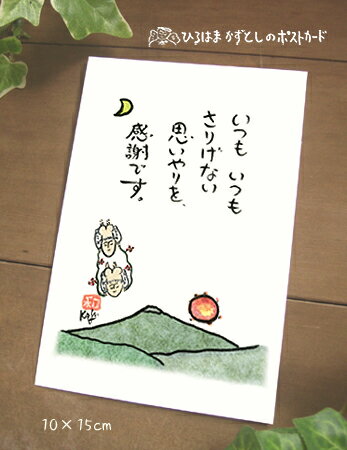 ひろはま かずとしのポストカード
いつも いつも
さりげない
思いやりを、
感謝です。
和
Kazu
10×15cm